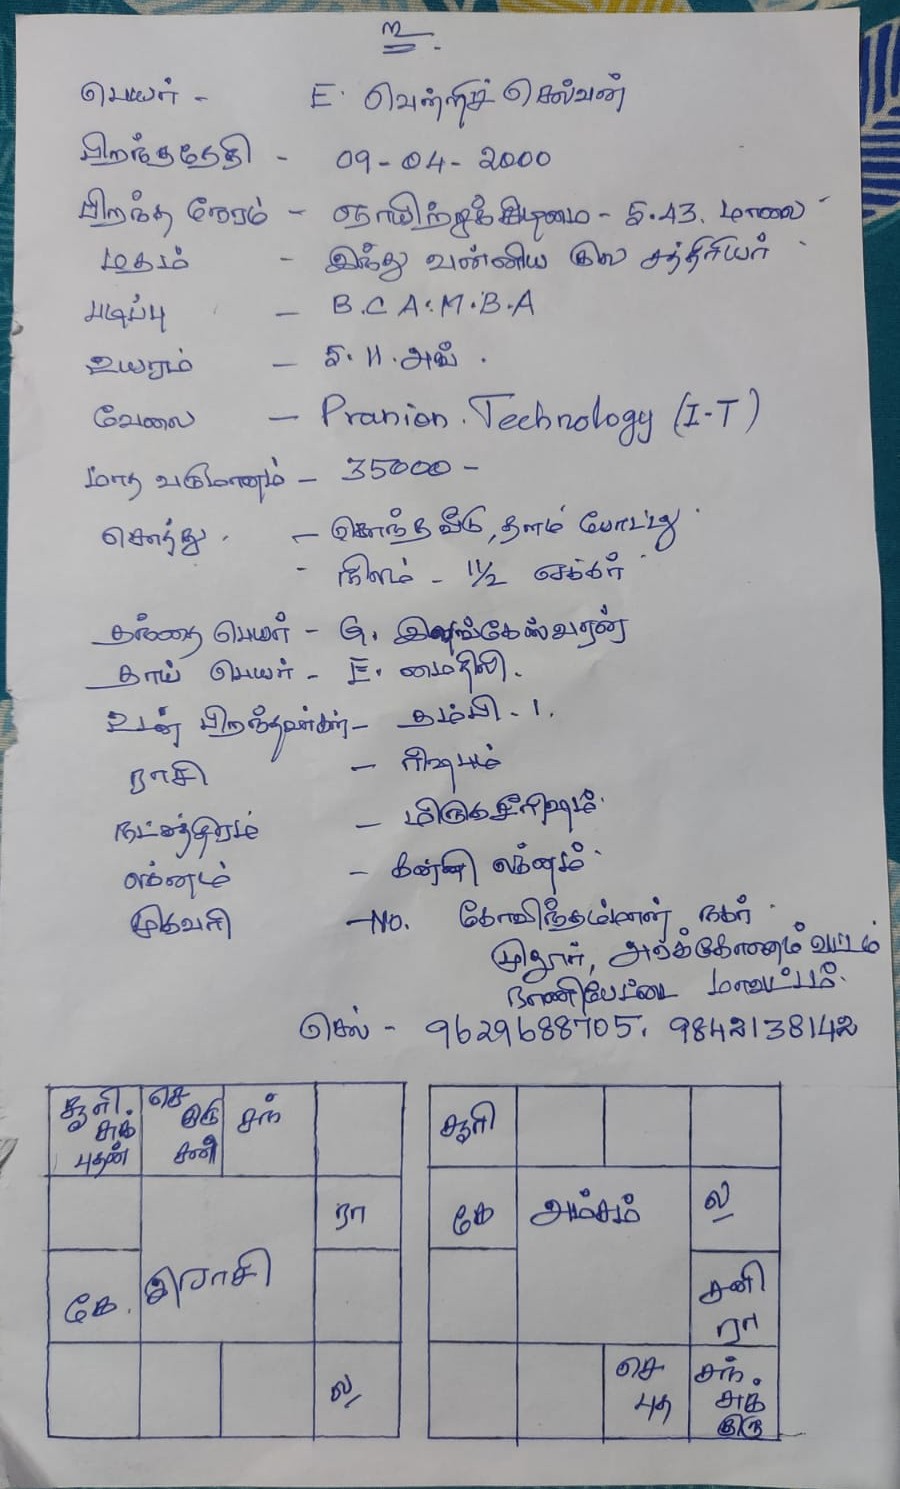 உ
பெயர் - E. வெற்றிச் செல்வன்
பிறந்ததேதி - 09-04-2000
பிறந்த நேரம் - ஞாயிற்றுக்கிழமை - 5.43. மாலை
மதம் - இந்து வன்னிய குல சத்திரியர்
படிப்பு - B.C A. M.B.A
உயரம் - 5.11.அங்.
வேலை - Pranion. Technology (I-T)
மாத வருமானம் - 35000 -
சொத்து - சொந்த வீடு, தளம் போட்டது
- நிலம் - 1 1/2 ஏக்கர்
தந்தை பெயர் - G. இலங்கேஸ்வரன்
தாய் பெயர் - E. மைதிலி.
உடன் பிறந்தவர்கள் - தம்பி - 1.
ராசி - ரிஷபம்
நட்சத்திரம் - மிருகசீரிஷம்
லக்னம் - கன்னி லக்னம்
முகவரி - No. கோவிந்தம்மன் நகர்
முதூர், அரக்கோணம் வட்டம்
ராணிபேட்டை மாவட்டம்.
செல் - 9629688705, 9842138142
சூரி. சுக் புதன் செ குரு சனி சந்
ரா
கே. இராசி
ல
சூரி
கே அம்சம் ல
சனி ரா
செ புத சந். சுக் குரு